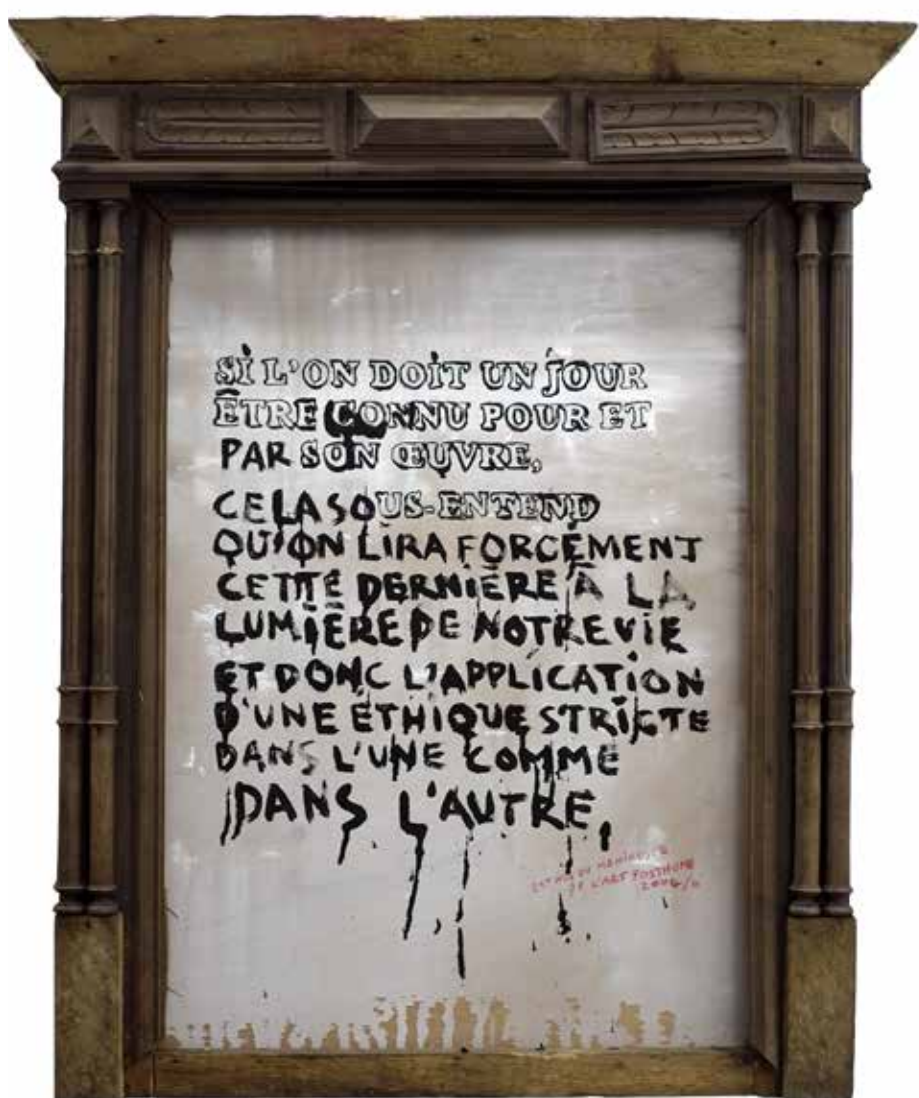 SI L'ON DOIT UN JOUR
ÊTRE CONNU POUR ET
PAR SON ŒUVRE,
CELA SOUS-ENTEND
QU'ON LIRA FORCÉMENT
CETTE DERNIÈRE À LA
LUMIÈRE DE NOTRE VIE
ET DONC L'APPLICATION
D'UNE ÉTHIQUE STRICTE
DANS L'UNE COMME
DANS L'AUTRE.
DU
DE L'ART POSTHUME